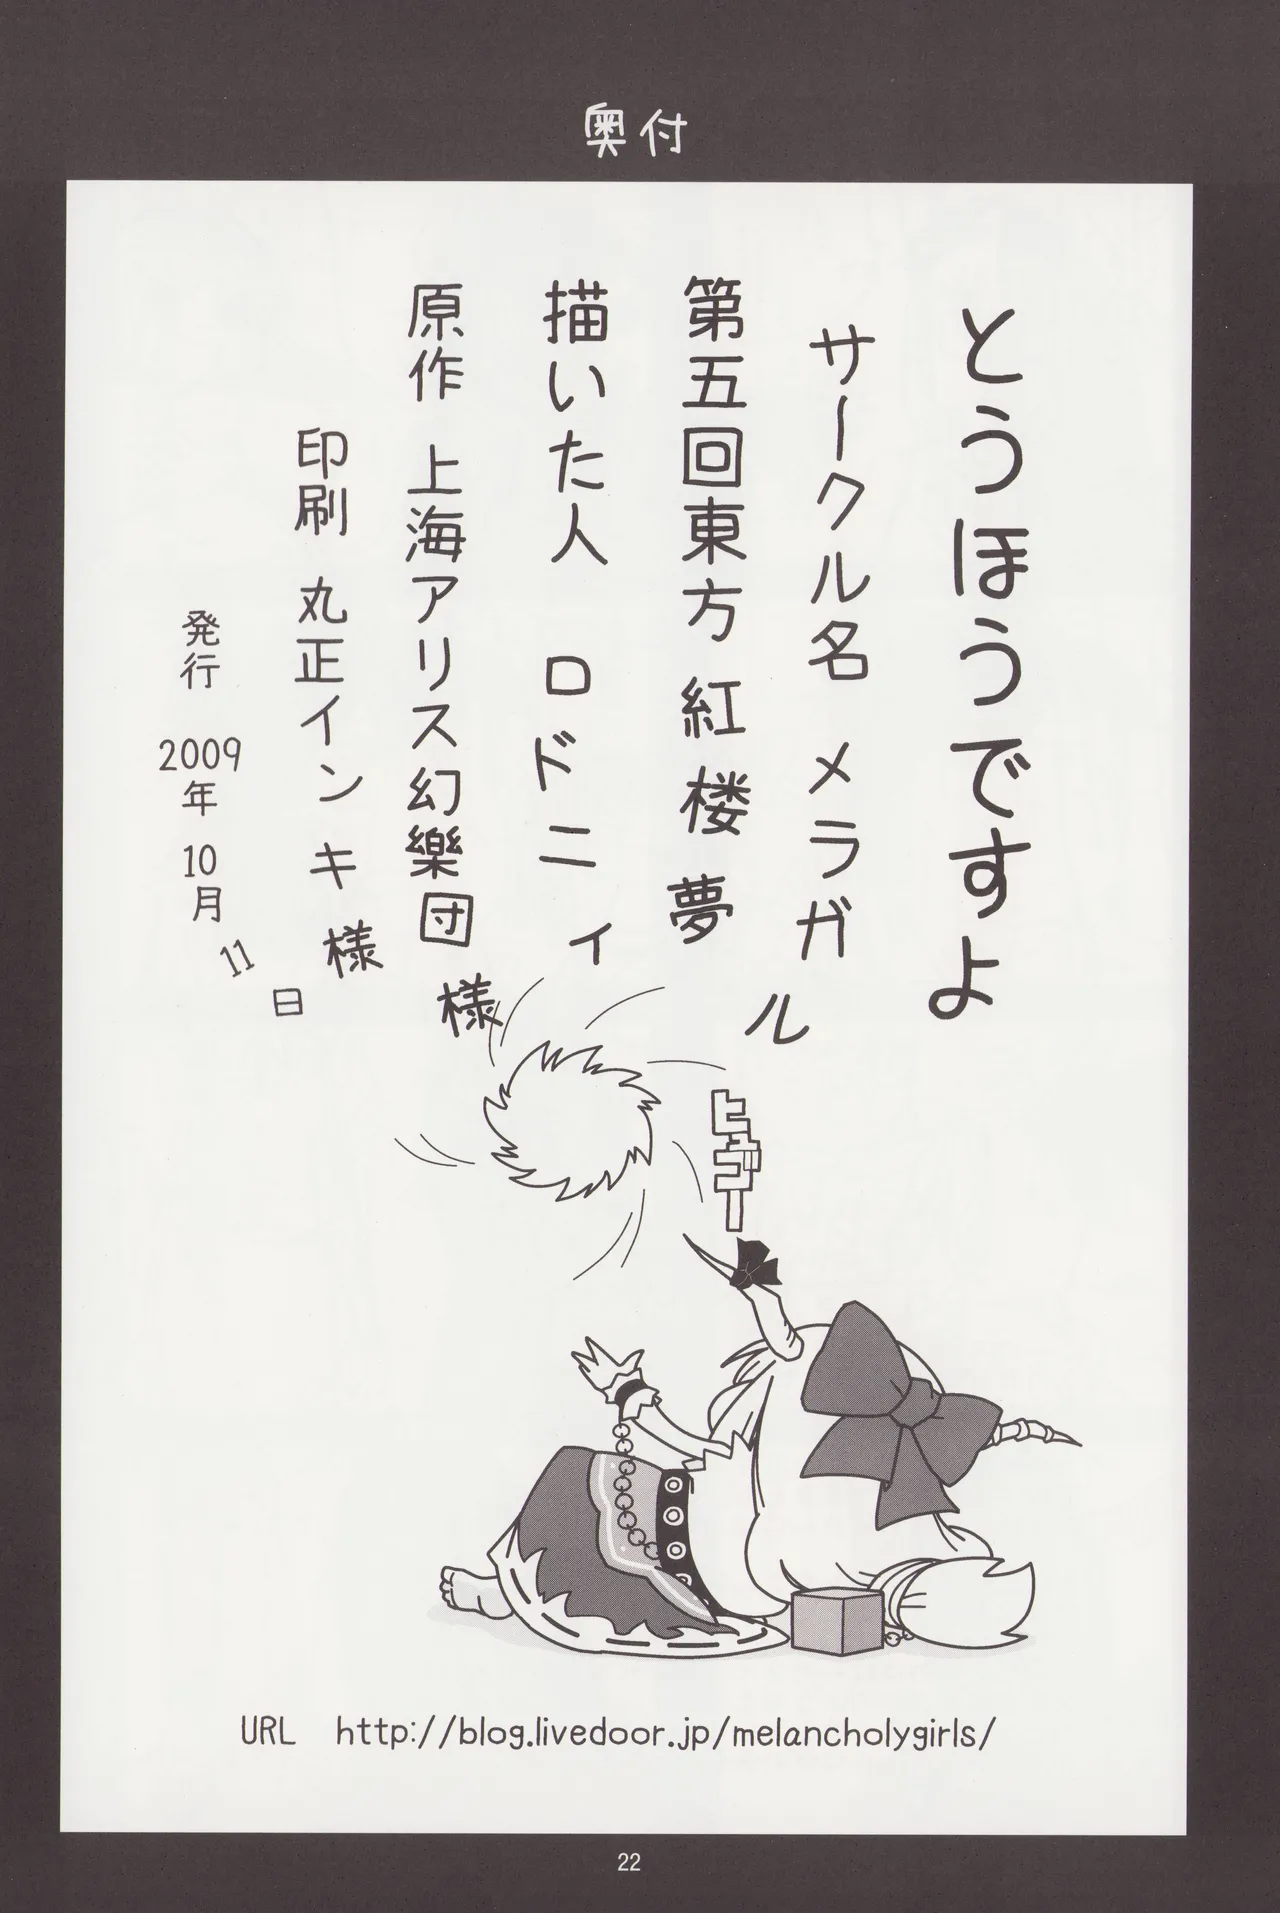 奥付
とうほうですよ
サークル名 メラガル
第五回東方紅楼夢
描いた人 ロドニィ
原作 上海アリス幻樂団様
印刷 丸正インキ様
発行 2009年10月11日
ヒュゴー
URL http://blog.livedoor.jp/melancholygirls/
22